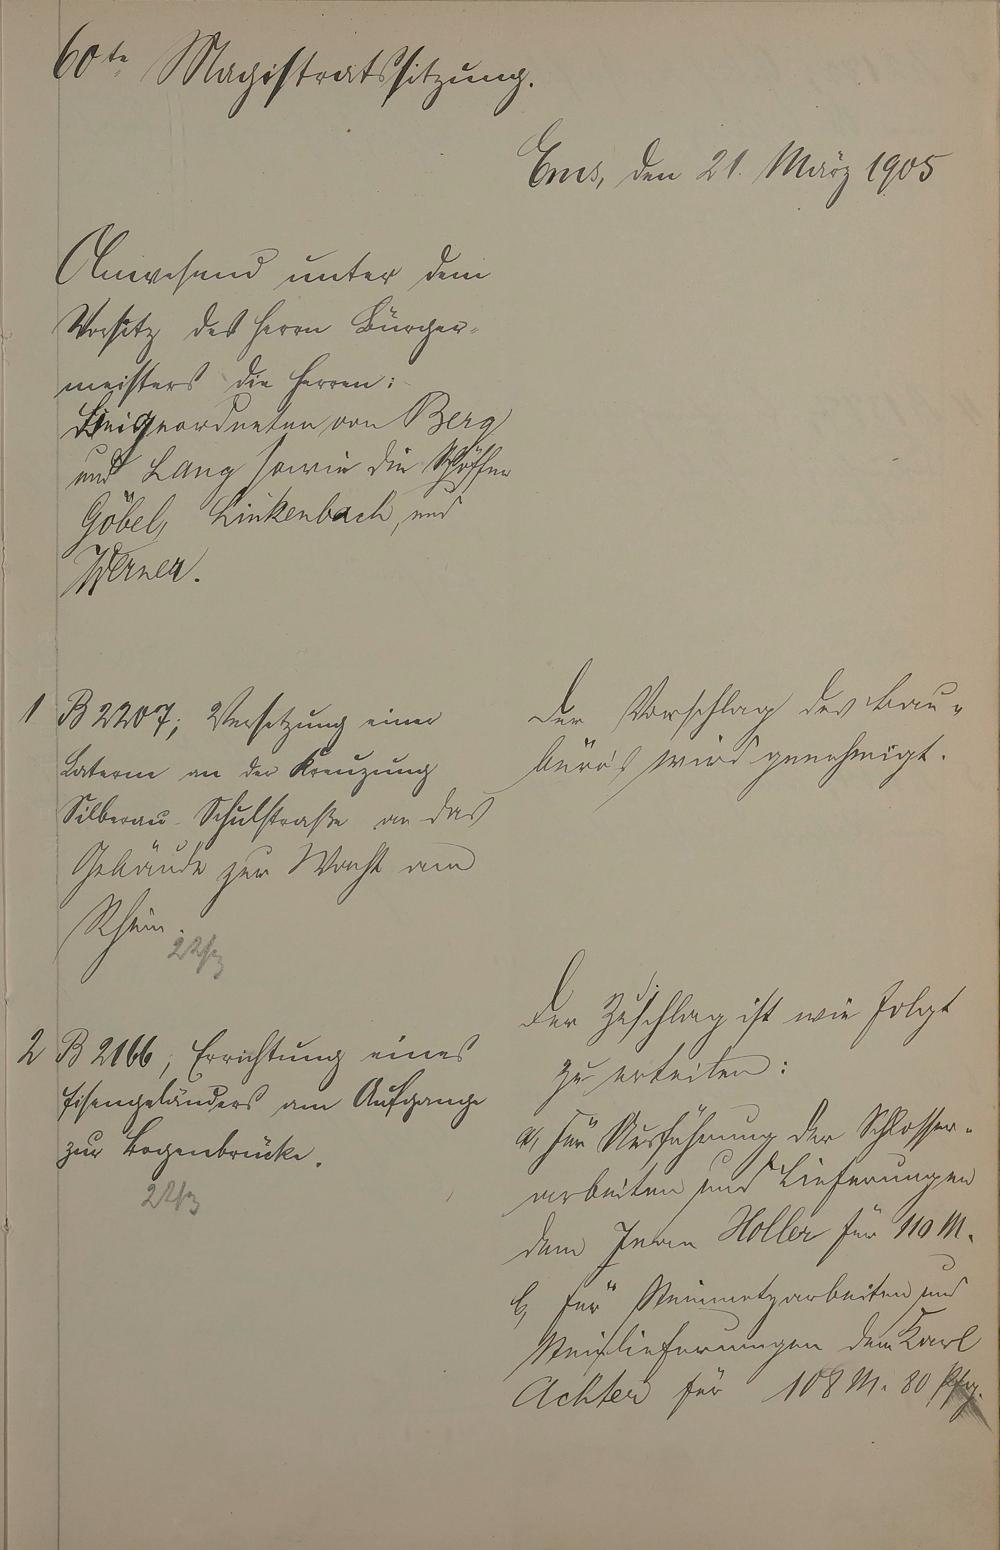 60te Magistratssitzung.
Ems, den 21. März 1905
Anwesend unter dem
Vorsitz des Herrn Bürger-
meisters die Herren:
Beigeordneten von Berg
und Lang sowie die Schöffen
Göbel, Linkenbach und
Werner.
1 B 2207, Versetzung einer
Laterne an der Kreuzung
Silberau-Schulstraße an das
Gebäude zur Wacht am
Rhein.
Der Vorschlag des Bau-
büro's wird genehmigt.
2 B 2166, Errichtung eines
Eisengeländers am Aufgange
zur Bogenbrücke.
Der Zuschlag ist wie folgt
zu erteilen:
a, Für Ausführung der Schlosser-
arbeiten und Lieferungen
dem Holler für 110 M.
b, für Steinmetzarbeiten und
Steinlieferungen dem Karl
Achter für 108 M. 80 Pfg.